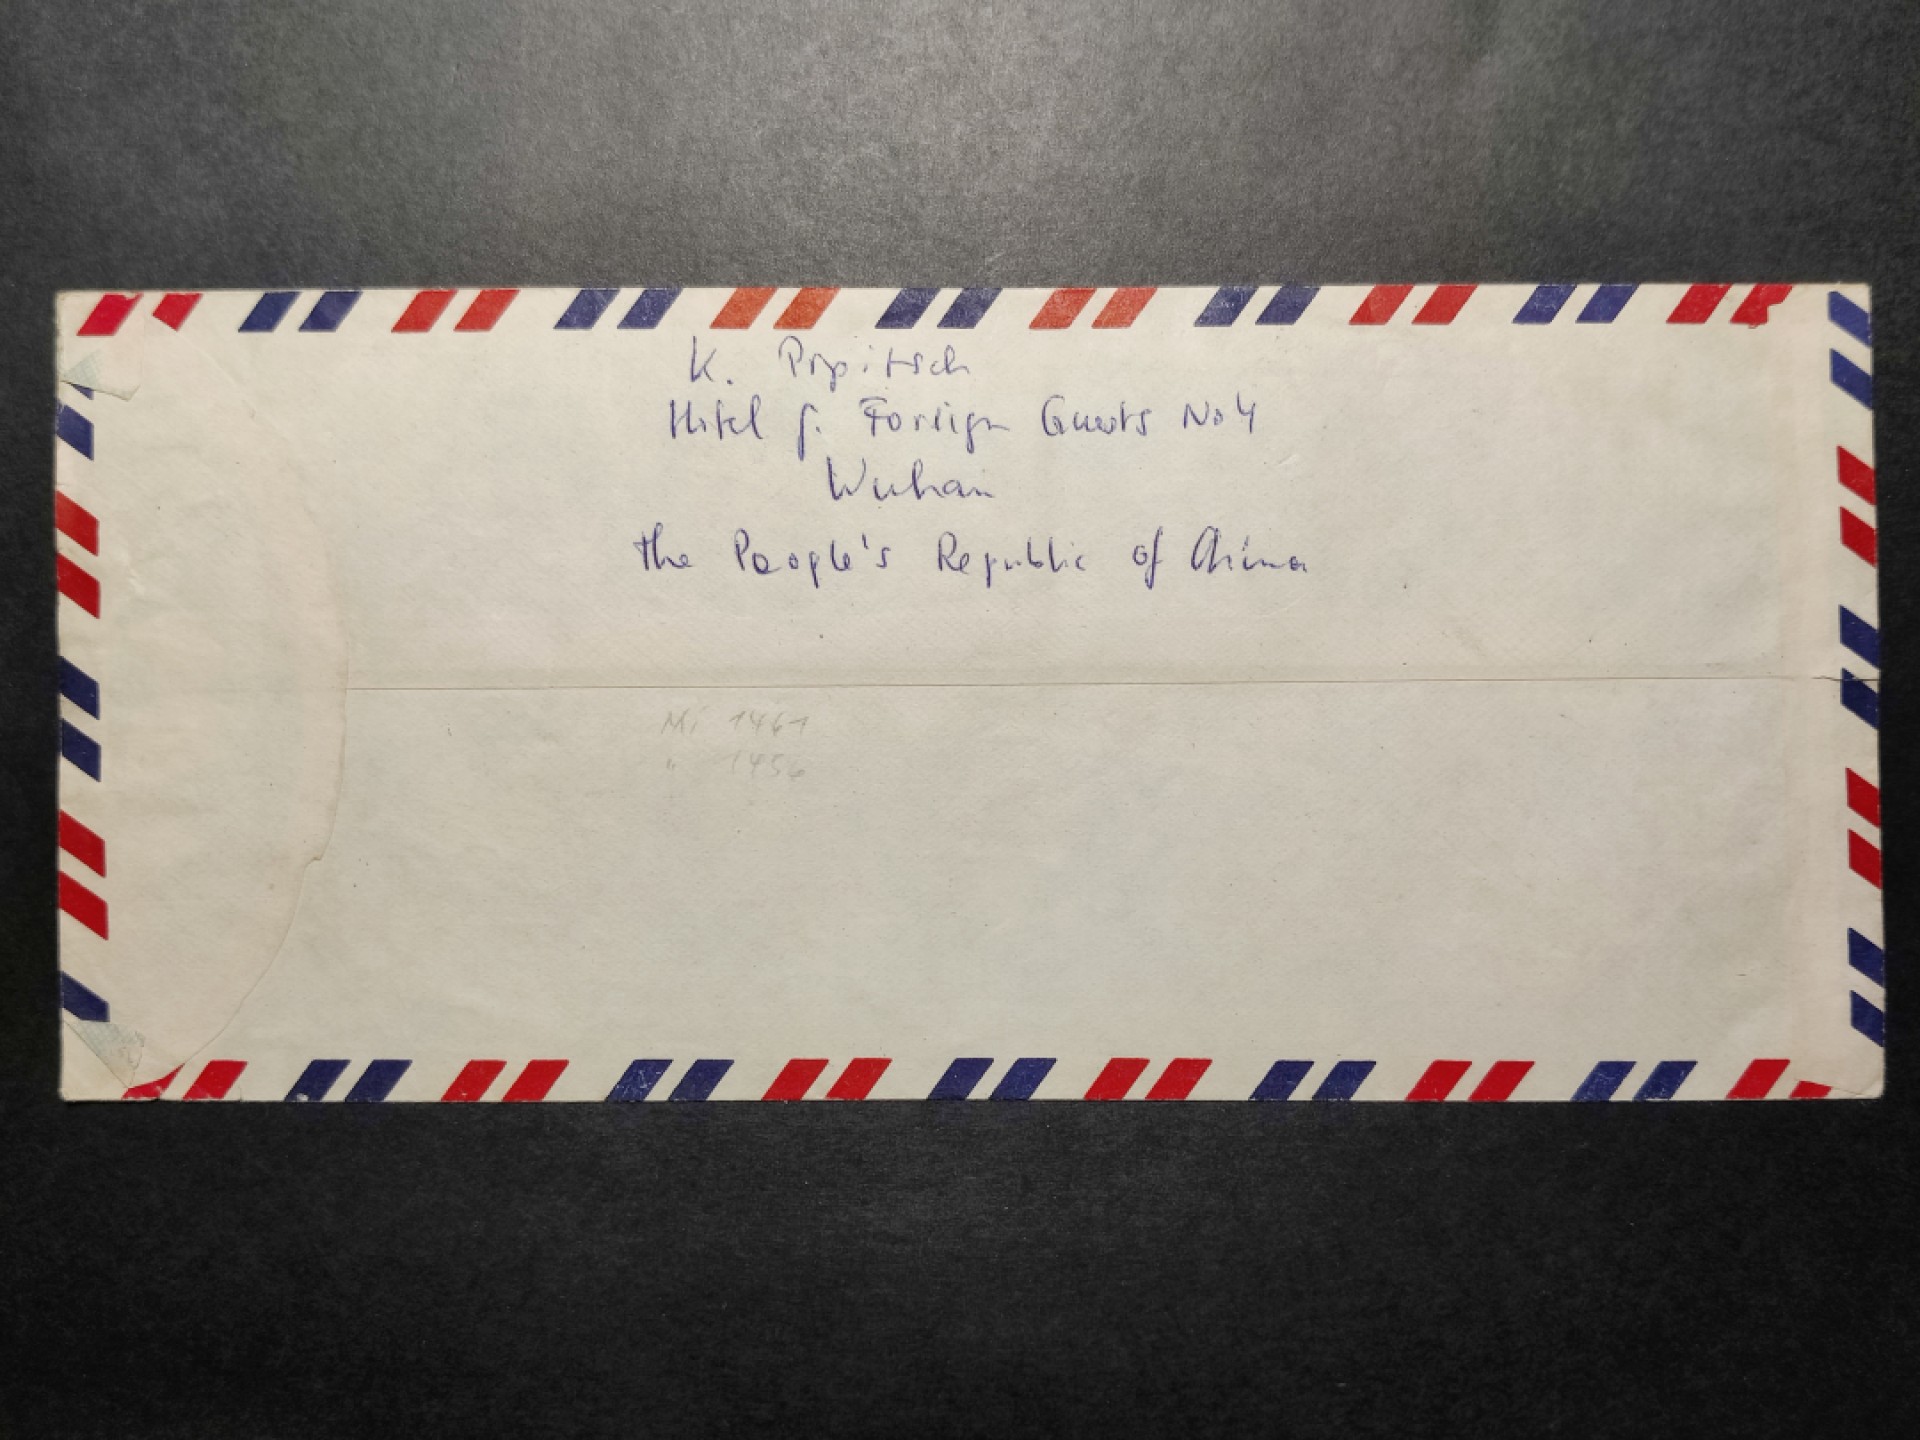 K. Popitsch
Hotel f. Foreign Guests No 4
Wuhan
the People's Republic of China
Mi 1461
" 1456